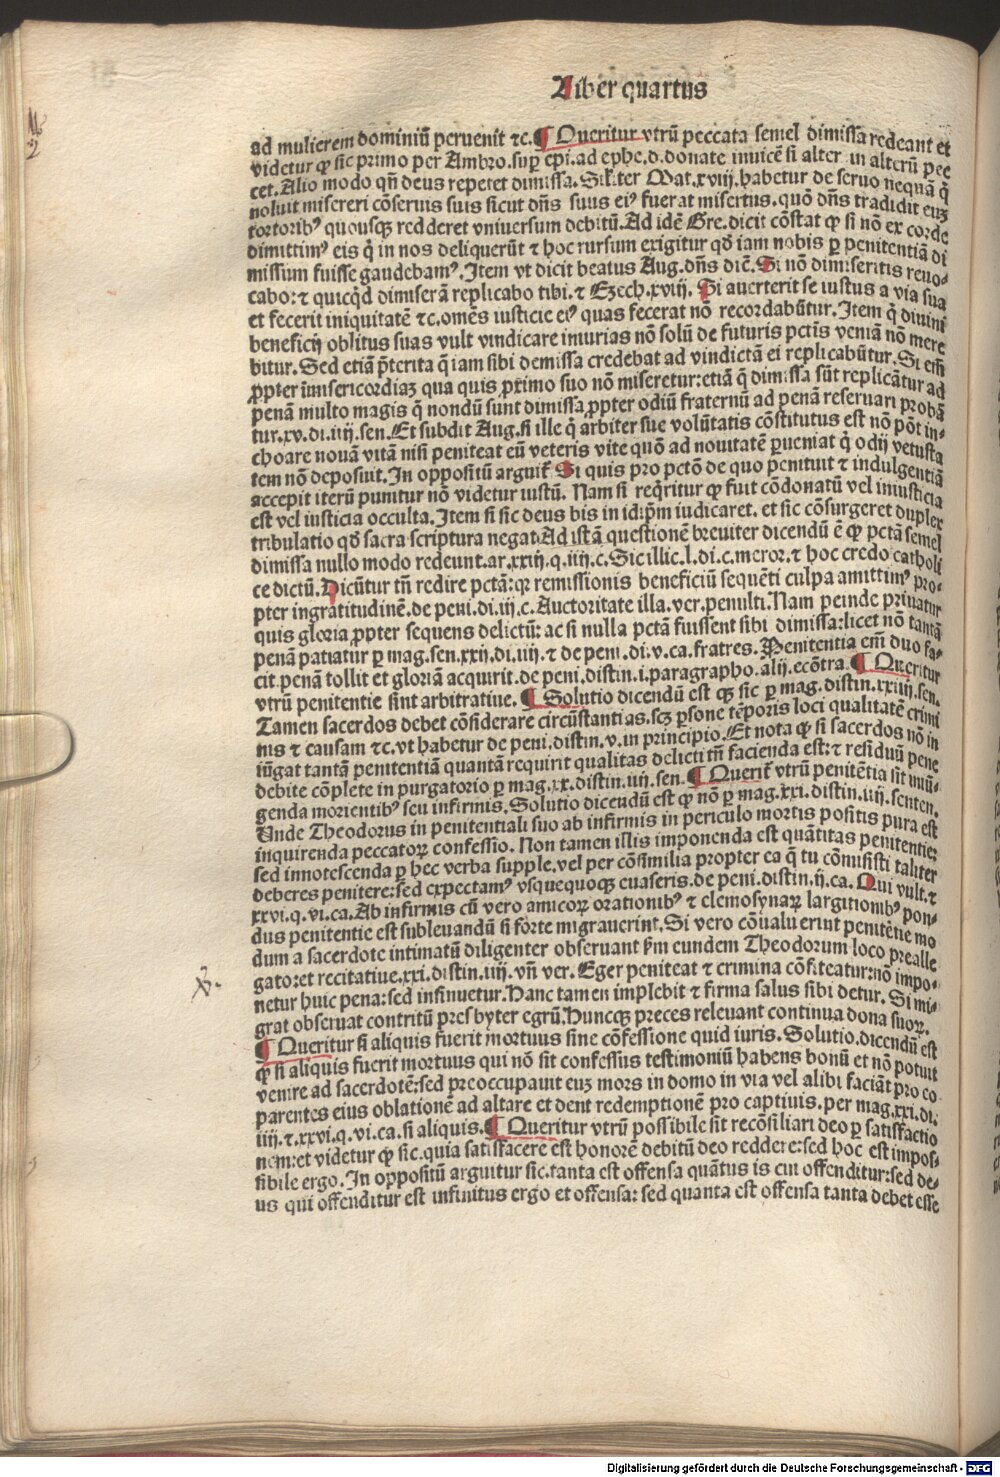 Liber quartus
ad mulierem dominiū peruenit ⁊c. ¶ Queritur vtrū peccata semel dimissa redeant et
videtur ꝙ sic primo per Ambro. suꝑ epi. ad ephe. d. donate inuicē si alter in alterū pec
cet. Alio modo qn̄ deus repetet dimissa. Siĺr ter Mat. xviij. habetur de seruo nequā q̄
noluit misereri cōseruis suis sicut dn̄s suus ei⁹ fuerat misertus. quō dn̄s tradidit euꝫ
tortorib⁹ quousqꝫ redderet vniuersum debitū. Ad idē Gre. dicit cōstat ꝙ si nō ex corde
dimittim⁹ eis q̄ in nos deliquerūt ⁊ hoc rursum exigitur qd̄ iam nobis ꝑ penitentiā di
missum fuisse gaudebam⁹. Item vt dicit beatus Aug. dn̄s dic̄. Si nō dimiseritis reuo-
cabo: ⁊ quicqd̄ dimiserā replicabo tibi. ⁊ Ezech. xviij. Si auerterit se iustus a via sua
et fecerit iniquitatē ⁊c. omēs iusticie ei⁹ quas fecerat nō recordabūtur. Item q̄ diuini
beneficij oblitus suas vult vindicare iniurias nō solū de futuris pctīs veniā nō mere
bitur. Sed etiā p̄terita q̄ iam sibi demissa credebat ad vindictā ei replicabūtur. Si em̄
ꝓpter īmisericordiaꝫ qua quis ꝓximo suo nō miseretur: etiā q̄ dimissa sūt replicātur ad
penā multo magis q̄ nondū sunt dimissa ꝓpter odiū fraternū ad penā reseruari probā
tur. xv. di. iiij. sen. Et subdit Aug. si ille q̄ arbiter sue volūtatis cōstitutus est nō pōt in-
choare nouā vitā nisi peniteat eū veteris vite quō ad nouitatē ꝑueniat q̄ odij vetusta
tem nō deposuit. In oppositū arguiť. Si quis pro pctō de quo penituit ⁊ indulgentiā
accepit iterū punitur nō videtur iustū. Nam si reqr̄itur ꝙ fuit cōdonatū vel iniusticia
est vel iusticia occulta. Item si sic deus bis in idip̄m iudicaret. et sic cōsurgeret duplex
tribulatio qd̄ sacra scriptura negat. Ad istā questionē breuiter dicendū ē ꝙ pctā semel
dimissa nullo modo redeunt. ar. xxiij. q. iiij. c. Sicillic. l. di. c. meror. ⁊ hoc credo catholi
ce dictū. Dicūtur tn̄ redire pctā: qꝛ remissionis beneficiū sequēti culpa amittim⁹ pro-
pter ingratitudinē. de peni. di. iij. c. Auctoritate illa. ver. penulti. Nam peinde priuatur
quis gloria ꝓpter sequens delictū: ac si nulla pctā fuissent sibi dimissa: licet nō tantā
penā patiatur ꝑ mag. sen. xxij. di. iiij. ⁊ de peni. di. v. ca. fratres. Penitentia em̄ duo fa-
cit penā tollit et gloriā acquirit. de peni. distin. i. paragrapho. alij. ecōtra. ¶ Queritur
vtrū penitentie sint arbitratiue. ¶ Solutio dicendū est qꝫ sic ꝑ mag. distin. xxiiij. sen.
Tamen sacerdos debet cōsiderare circūstantias. scꝫ ꝑsone tēporis loci qualitatē crimi
nis ⁊ causam ⁊c. vt habetur de peni. distin. v. in principio. Et nota ꝙ si sacerdos nō in
iūgat tantā penitentiā quantā requirit qualitas delicti tn̄ facienda est: ⁊ residuū pene
debite cōplete in purgatorio ꝑ mag. xx. distin. iiij. sen. ¶ Querit̄ vtrū penitētia sit iniū-
genda morientib⁹ seu infirmis. Solutio dicendū est ꝙ nō ꝑ mag. xxi. distin. iiij. senten.
Unde Theodorus in penitentiali suo ab infirmis in periculo mortis positis pura est
inquirenda peccatoꝝ confessio. Non tamen illis imponenda est quātitas penitentie:
sed innotescenda ꝑ hec verba supple. vel per cōsimilia propter ea q̄ tu cōmisisti taliter
deberes penitere: sed expectam⁹ vsquequoqꝫ euaseris. de peni. distin. ij. ca. Qui vult. ⁊
xxvi. q. vi. ca. Ab infirmis cū vero amicoꝝ orationib⁹ ⁊ elemosynaꝝ largitionib⁹ pon-
dus penitentie est subleuandū si forte migrauerint. Si vero cōualuerint penitētie mo
dum a sacerdote intimatū diligenter obseruant ẜm eundem Theodorum loco prealle
gato: et recitatiue. xxi. distin. iiij. vn̄ ver. Eger peniteat ⁊ crimina cōfiteatur: nō impo-
netur huic pena: sed insinuetur. Hanc tamen implebit ⁊ firma salus sibi detur. Si mi-
grat obseruat contritū presbyter egrū. Huncqꝫ preces releuant continua dona suoꝝ.
¶ Queritur si aliquis fuerit mortuus sine cōfessione quid iuris. Solutio. dicendū est
ꝙ si aliquis fuerit mortuus qui nō sit confessus testimoniū habens bonū et nō potuit
venire ad sacerdotē: sed preoccupauit euꝫ mors in domo in via vel alibi faciāt pro eo
parentes eius oblationē ad altare et dent redemptionē pro captiuis. per mag. xxi. di.
iiij. ⁊. xxvi. q. vi. ca. si aliquis. ¶ Queritur vtrū possibile sit recōsiliari deo ꝑ satisfactio
nem: et videtur ꝙ sic. quia satisfacere est honorē debitū deo reddere: sed hoc est impos-
sibile ergo. In oppositū arguitur sic. tanta est offensa quātus is cui offenditur: sed de-
us qui offenditur est infinitus ergo et offensa: sed quanta est offensa tanta debet esse
Digitalisierung gefördert durch die Deutsche Forschungsgemeinschaft - DFG